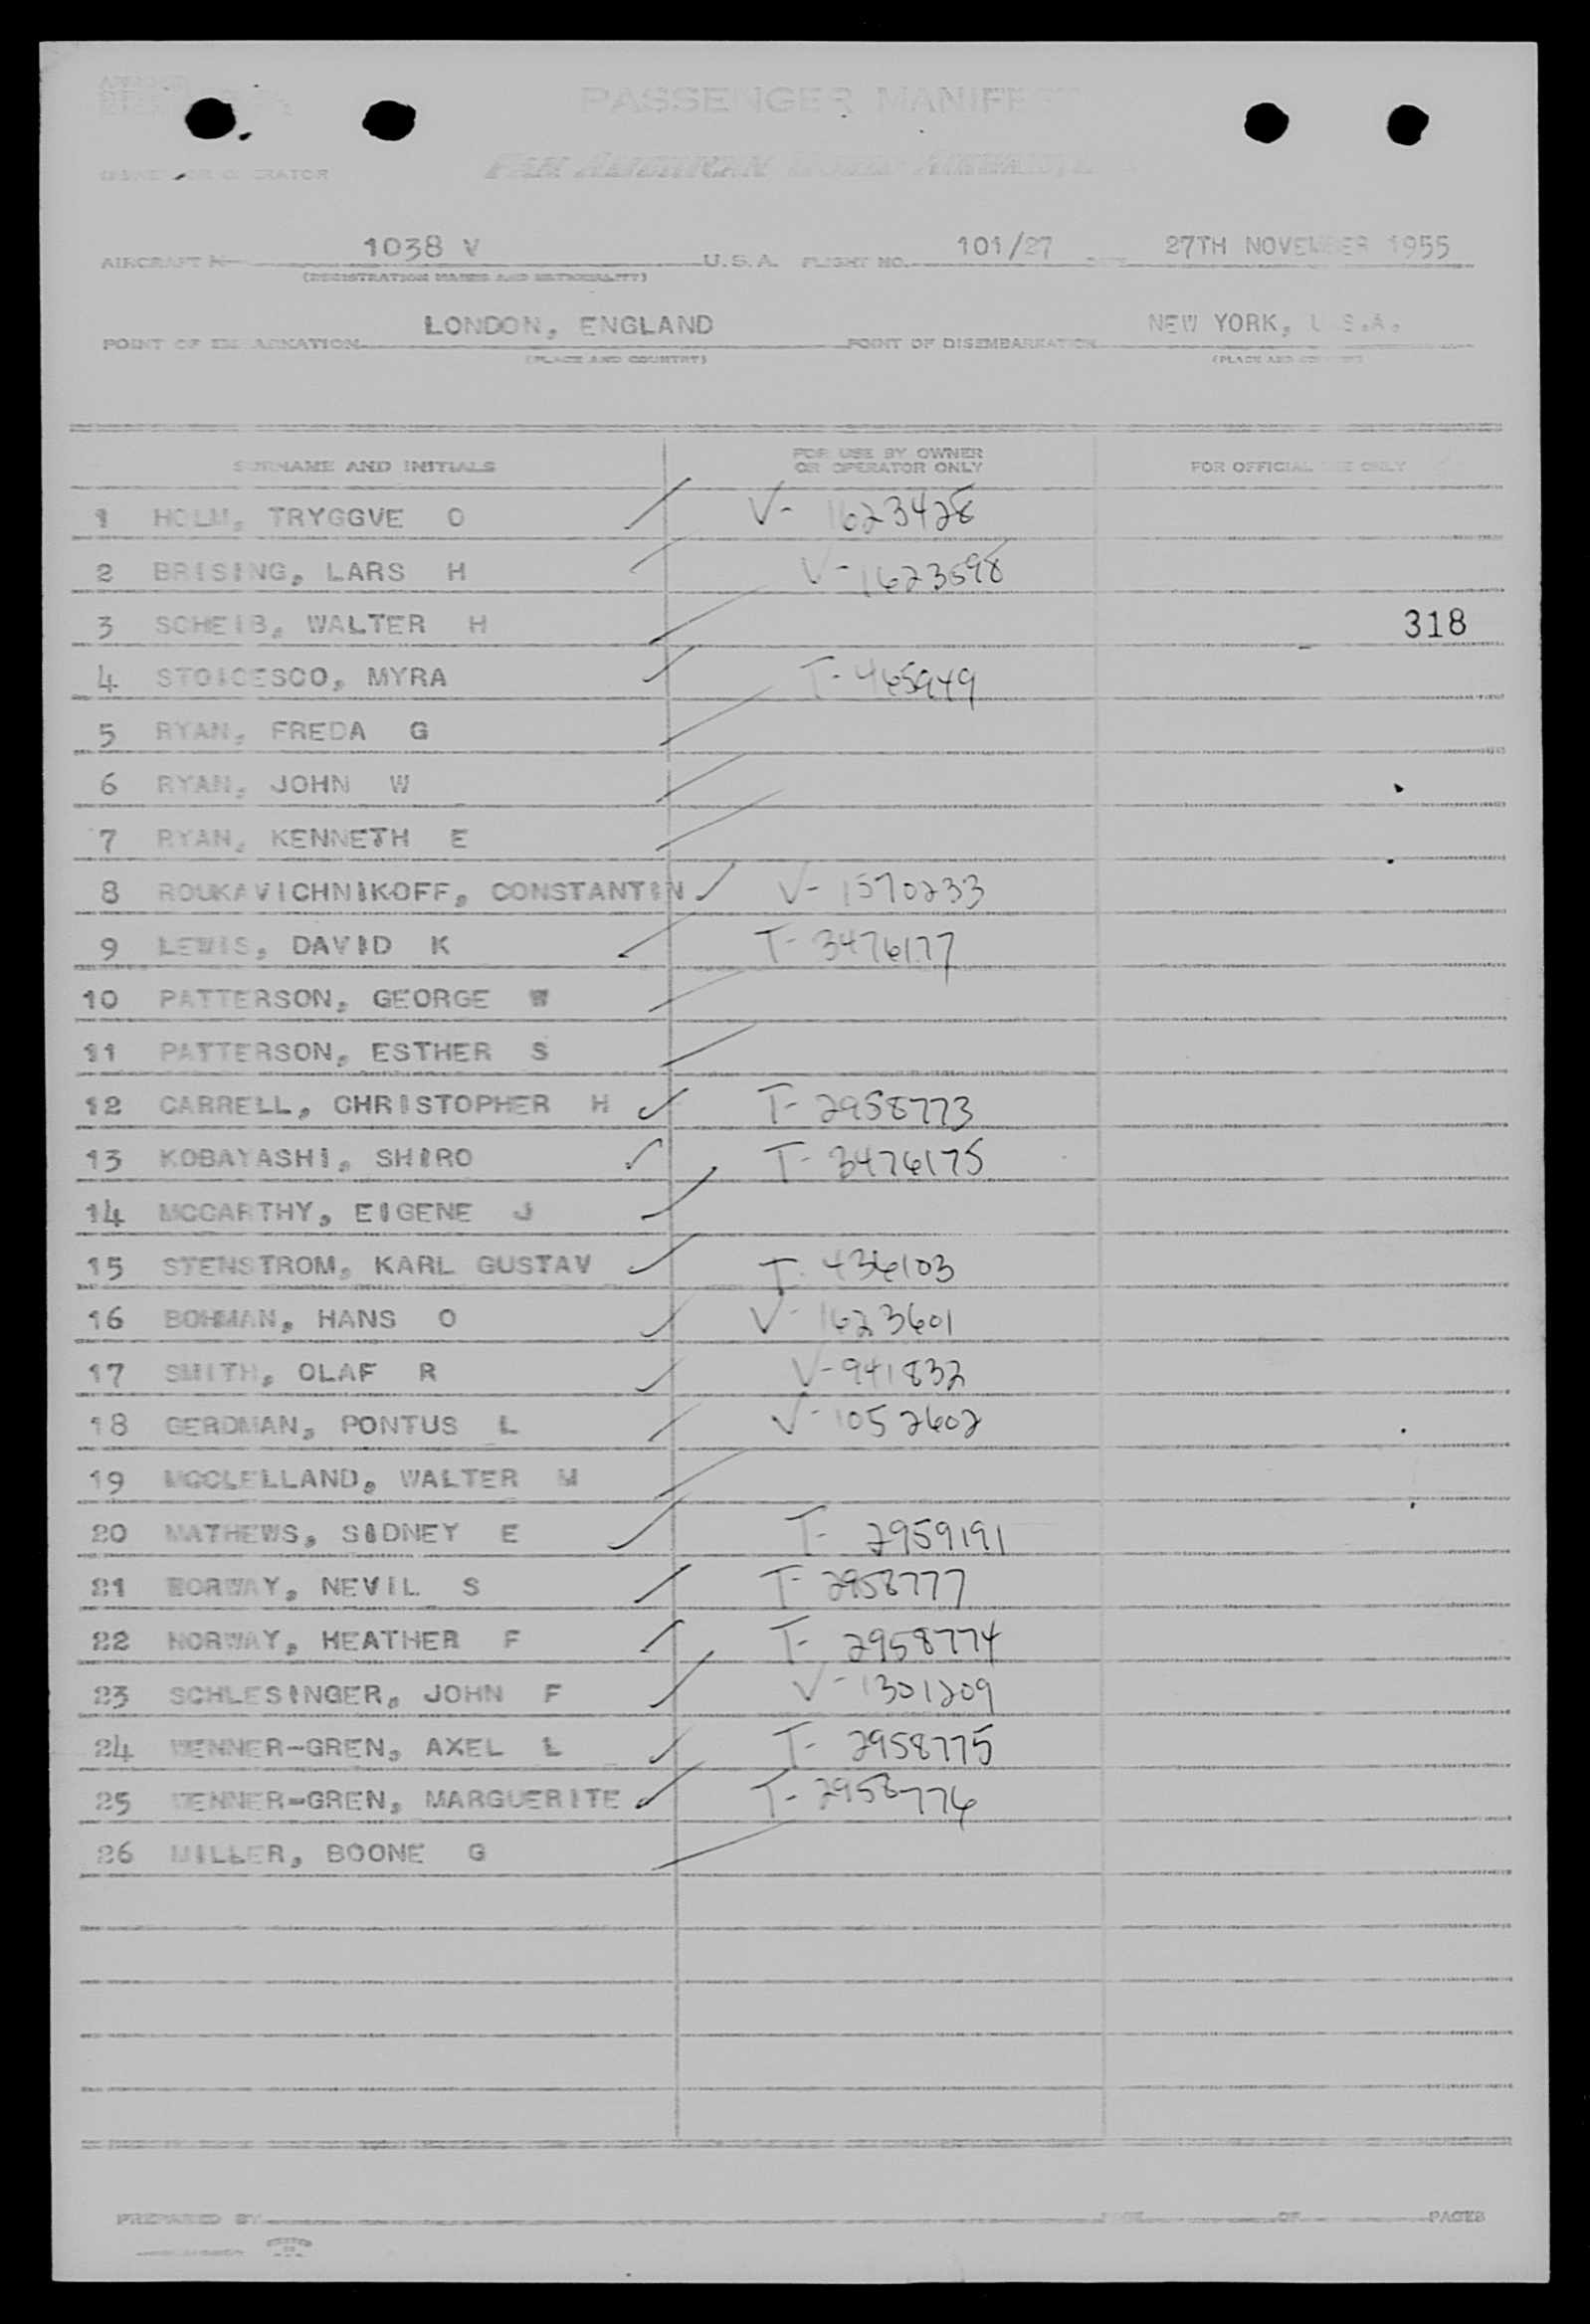 PASSENGER MANIFEST
PAN AMERICAN WORLD AIRWAYS
OWNER OR OPERATOR
AIRCRAFT 1038 V U.S.A. FLIGHT NO. 101/27 27TH NOVEMBER 1955
(REGISTRATION MARKS AND NATIONALITY)
POINT OF EMBARKATION LONDON, ENGLAND POINT OF DISEMBARKATION NEW YORK, U.S.A.
(PLACE AND COUNTRY) (PLACE AND COUNTRY)
SURNAME AND INITIALS FOR USE BY OWNER OR OPERATOR ONLY FOR OFFICIAL USE ONLY
1 HOLM, TRYGGVE O V- 1623428
2 BRISING, LARS H V- 1623598
3 SCHEIB, WALTER H 318
4 STOICESCO, MYRA T- 465949
5 RYAN, FREDA G
6 RYAN, JOHN W
7 RYAN, KENNETH E
8 ROUKAVICHNIKOFF, CONSTANTIN V- 1570233
9 LEWIS, DAVID K T- 3476177
10 PATTERSON, GEORGE W
11 PATTERSON, ESTHER S
12 CARRELL, CHRISTOPHER H T- 2958773
13 KOBAYASHI, SHIRO T- 3476175
14 MCCARTHY, EIGENE J
15 STENSTROM, KARL GUSTAV T- 436103
16 BOHMAN, HANS O V- 1623601
17 SMITH, OLAF R V- 941832
18 GERDMAN, PONTUS L V- 1052602
19 MCCLELLAND, WALTER M
20 MATHEWS, SIDNEY E T- 2959191
21 NORWAY, NEVIL S T- 2958777
22 NORWAY, HEATHER F T- 2958774
23 SCHLESINGER, JOHN F V- 1301209
24 WENNER-GREN, AXEL L T- 2958775
25 WENNER-GREN, MARGUERITE T- 2958776
26 MILLER, BOONE G
PREPARED BY OF PAGES